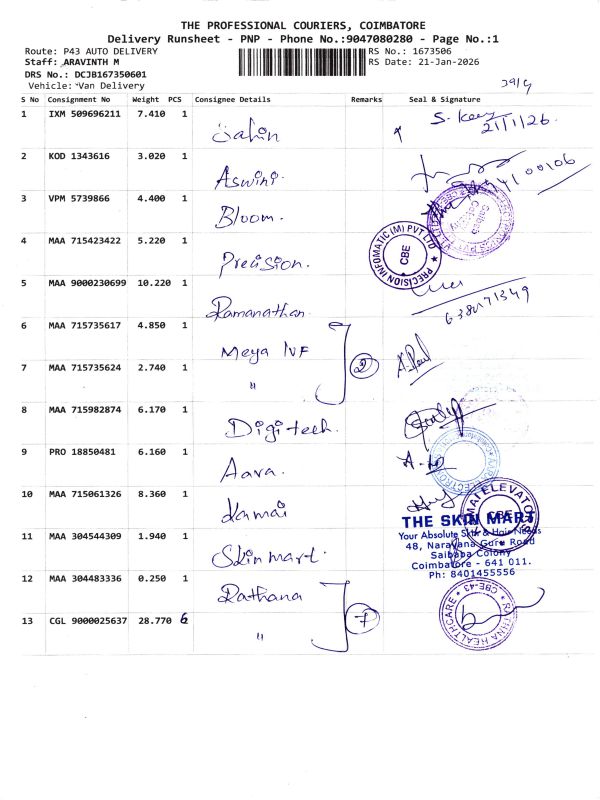 THE PROFESSIONAL COURIERS, COIMBATORE
Delivery Runsheet - PNP - Phone No.:9047080280 - Page No.:1
Route: P43 AUTO DELIVERY RS No.: 1673506
Staff: ARAVINTH M RS Date: 21-Jan-2026
DRS No.: DCJB167350601
Vehicle: Van Delivery
S No Consignment No Weight PCS Consignee Details Remarks Seal & Signature
1 IXM 509696211 7.410 1
21/1/26.
2 KOD 1343616 3.020 1 Aswini.
3 VPM 5739866 4.400 1 Bloom.
4 MAA 715423422 5.220 1 Precision.
PRECISION INFOMATIC (M) PVT LTD
CBE
5 MAA 9000230699 10.220 1 Ramanathan.
6 MAA 715735617 4.850 1 Meya IVF
2
7 MAA 715735624 2.740 1 "
8 MAA 715982874 6.170 1 Digitech.
9 PRO 18850481 6.160 1 Aara.
10 MAA 715061326 8.360 1 Kamai
CBE
11 MAA 304544309 1.940 1 Skinmart.
THE SKIN MART
Your Absolute Skin & Hair Needs
48, Narayana Guru Road
Saibaba Colony
Coimbatore - 641 011.
Ph: 8401455556
12 MAA 304483336 0.250 1 Rathana
7
13 CGL 9000025637 28.770 6 "
RATHNA HEALTHCARE
CBE-43